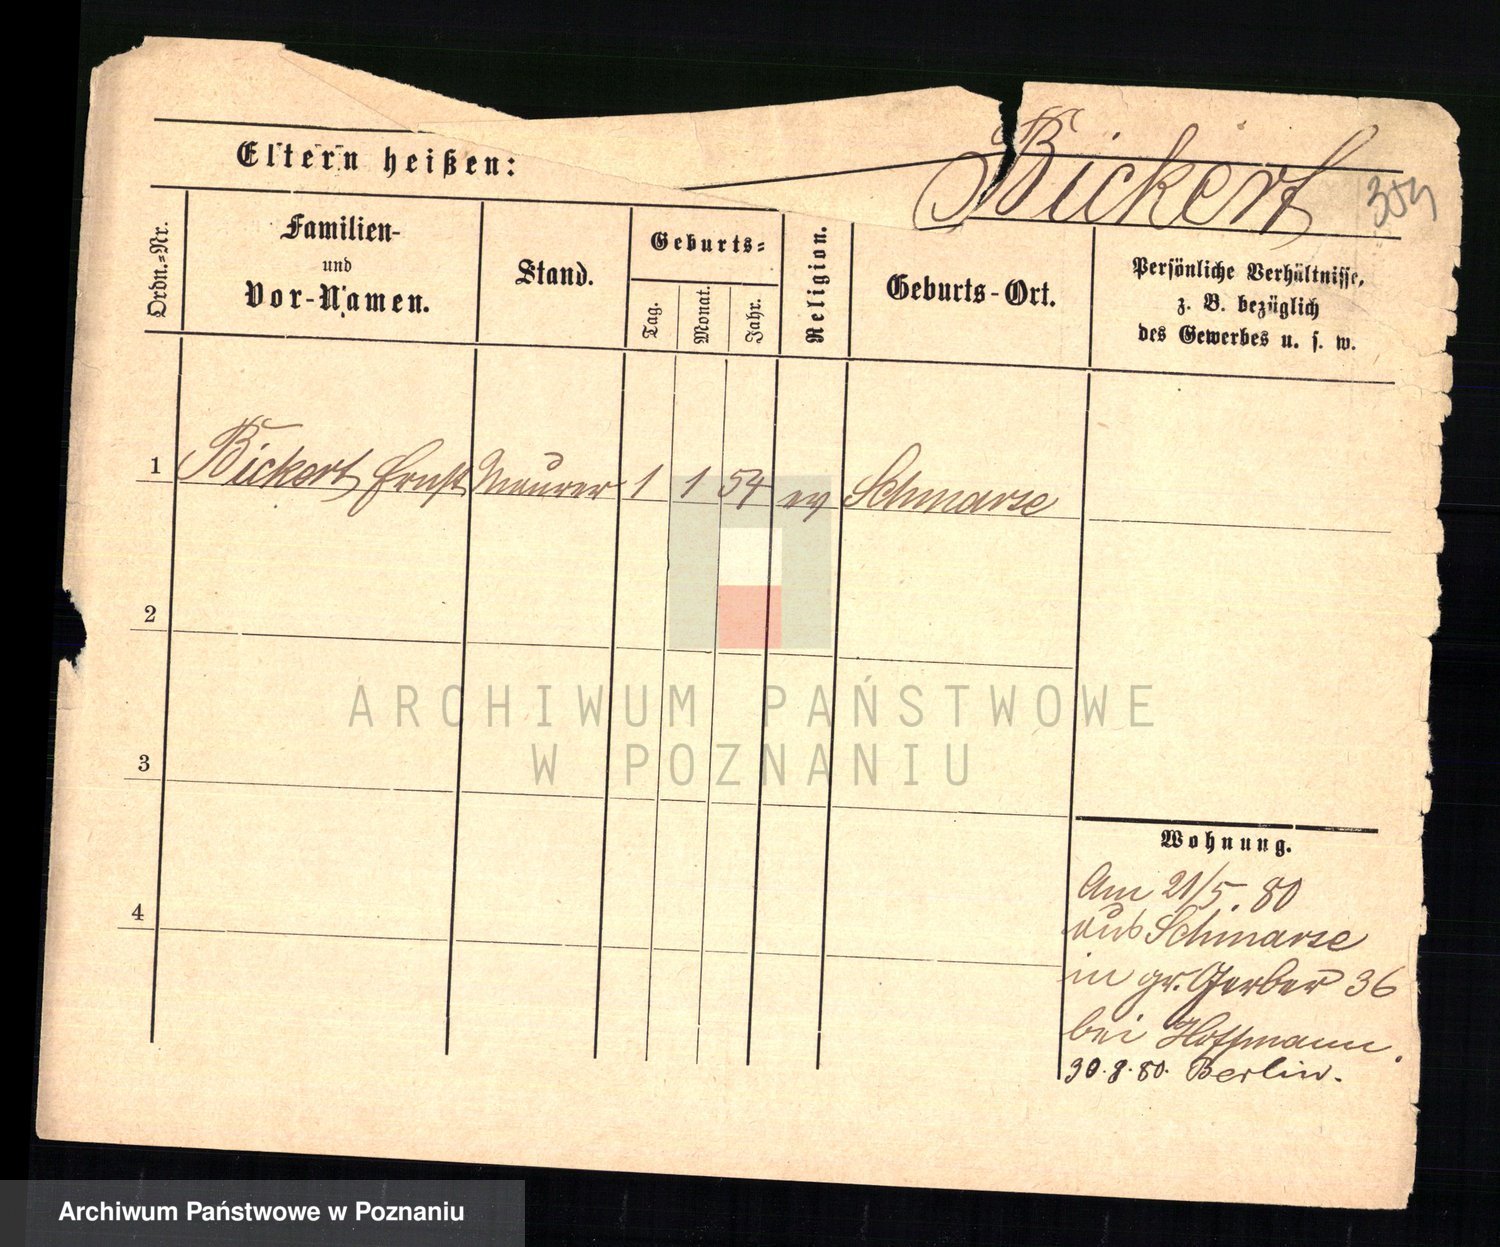 Eltern heißen:
Bickert
354
Ordn.=Nr.
Familien-
und
Vor-Namen.
Stand.
Geburts=
Tag.
Monat.
Jahr.
Religion.
Geburts-Ort.
Persönliche Verhältnisse,
z. B. bezüglich
des Gewerbes u. s. w.
1 Bickert Ernst Maurer 1 1 54 ev Schmarse
2
3
4
Wohnung.
Am 21/5. 80
aus Schmarse
in gr. Gerber 36
bei Hoffmann.
30.8.80. Berlin.
ARCHIWUM PAŃSTWOWE
W POZNANIU
Archiwum Państwowe w Poznaniu